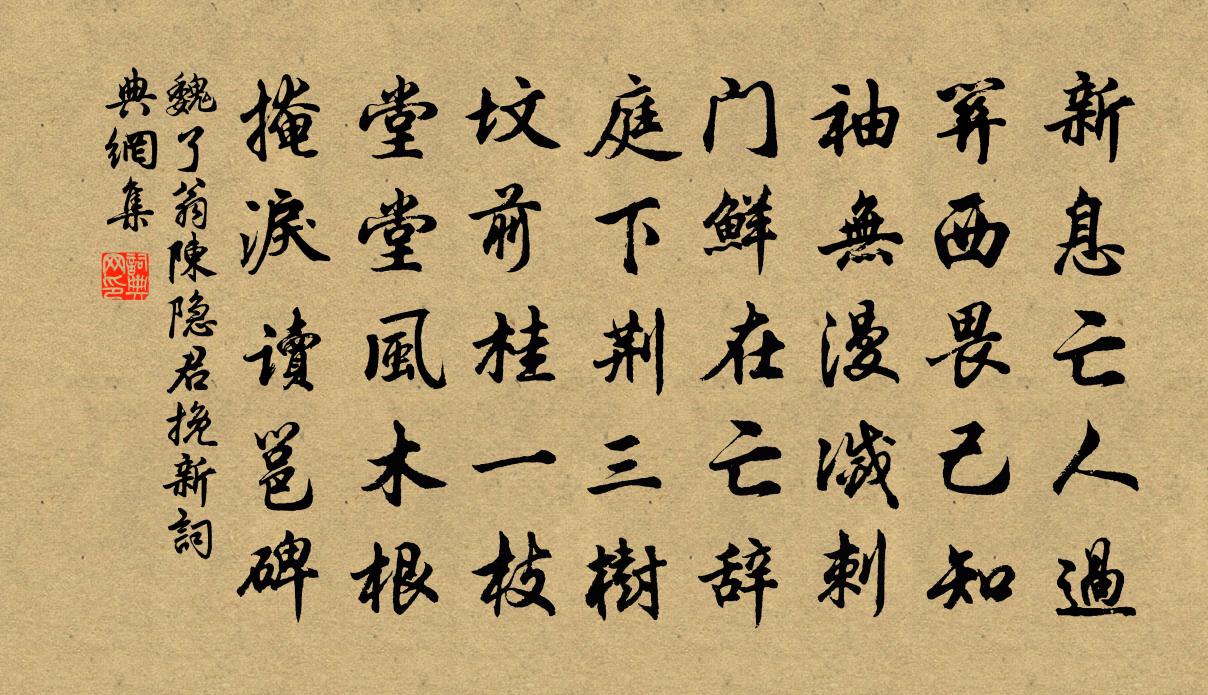 新息亡人過
关西畏己知
袖無漫滅刺
门鮮在亡辞
庭下荆三樹
坟前桂一枝
堂堂風木根
掩淚讀邕碑
魏了翁陳隐君挽新詞
典網集
詞典
网印